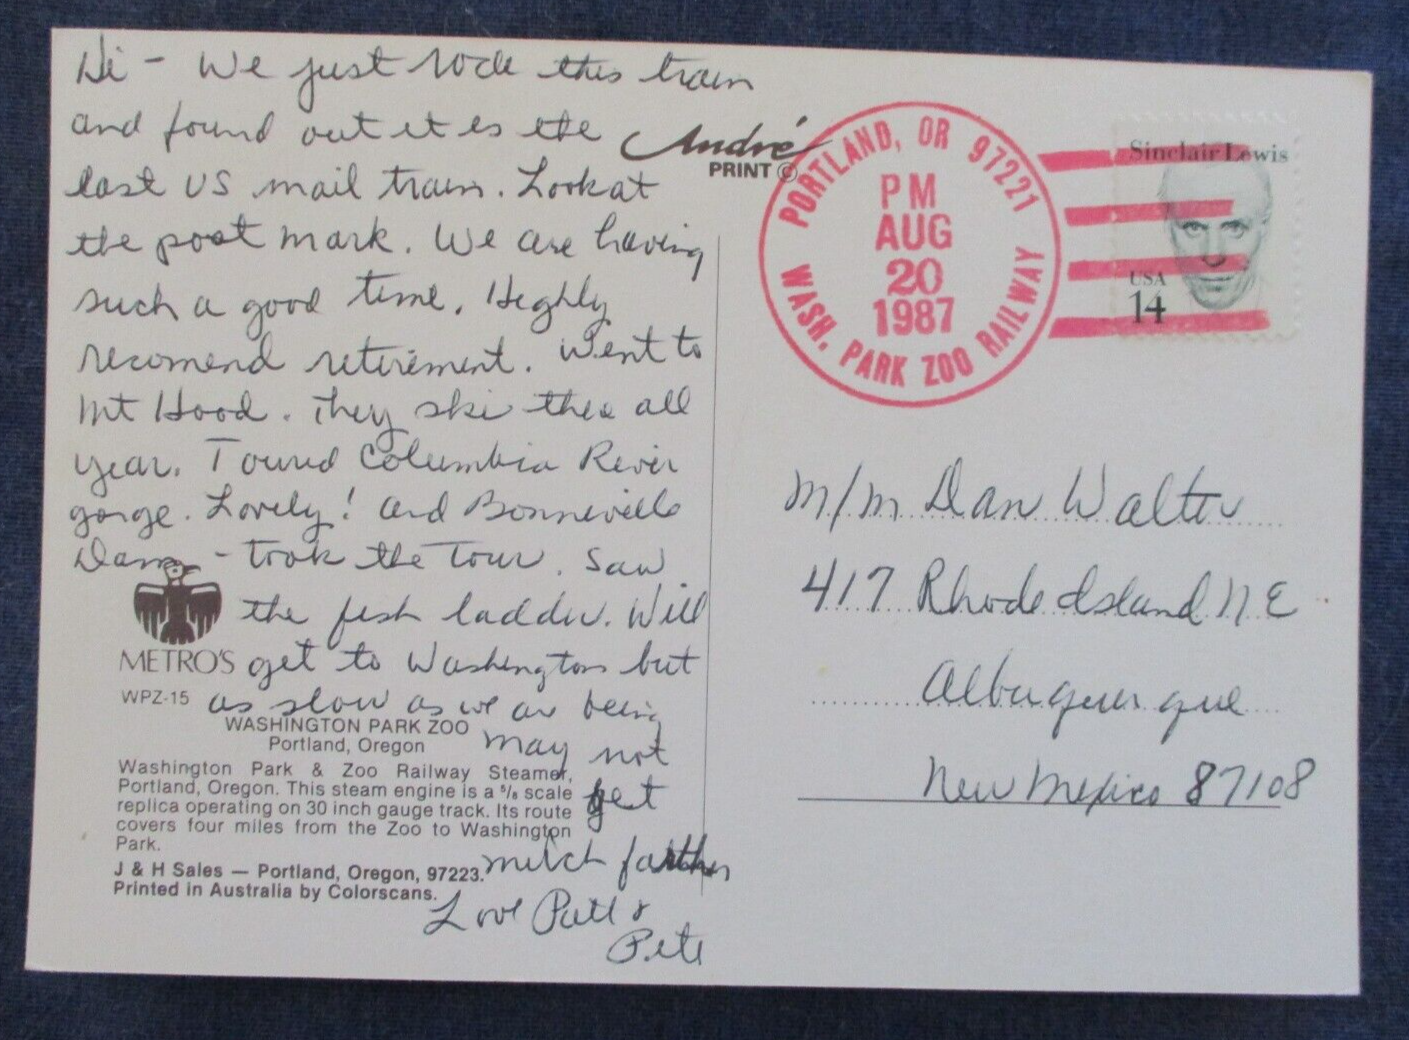 Hi - We just rode this train
and found out it is the
last US mail train. Look at
the post mark. We are having
such a good time. Highly
recomend retirement. Went to
Mt Hood. They ski there all
year. Toured Columbia River
gorge. Lovely! and Bonneville
Dam - took the Tour. Saw
the fish ladder. Will
get to Washington but
as slow as we are being
may not
get
much farther
Love Patt &
Pete
André
PRINT ©
METRO'S
WPZ-15
WASHINGTON PARK ZOO
Portland, Oregon
Washington Park & Zoo Railway Steamer,
Portland, Oregon. This steam engine is a ⅝ scale
replica operating on 30 inch gauge track. Its route
covers four miles from the Zoo to Washington
Park.
J & H Sales — Portland, Oregon, 97223.
Printed in Australia by Colorscans.
PORTLAND, OR 97221
PM
AUG
20
1987
WASH. PARK ZOO RAILWAY
Sinclair Lewis
USA
14
M/M Dan Walter
417 Rhode Island NE
Albuquerque
New Mexico 87108